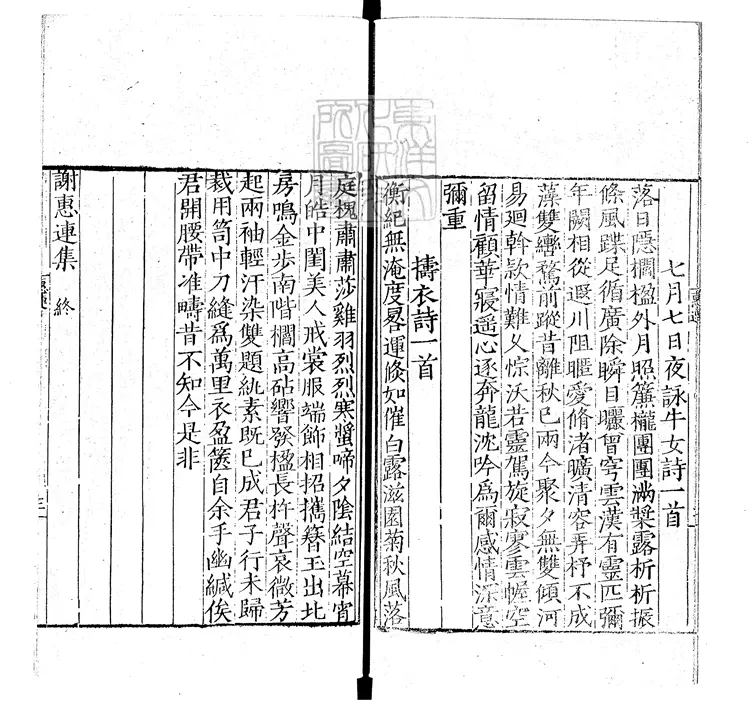 七月七日夜詠牛女詩一首
落日隱櫩楹外月照簾櫳團團滿葉露析析振
條風蹀足循廣除瞬目曬曾穹雲漢有靈匹彌
年闕相從遐川阻暱愛脩渚曠清容弄杼不成
藻雙轡騖前蹤昔離秋巳兩今聚夕無雙傾河
易迴斡欵情難乆悰沃若靈駕旋寂寥雲幄空
留情顧華寢遥心逐奔龍沈吟爲爾感情深意
彌重
擣衣詩一首
衡紀無淹度晷運倐如催白露滋園菊秋風落
庭槐肅肅莎雞羽烈烈寒螿啼夕陰結空幕宵
月皓中閨美人戒裳服端飾相招攜簪玉出北
房鳴金步南階櫩高砧響發楹長杵聲哀微芳
起兩袖輕汗染雙題紈素既巳成君子行未歸
裁用笥中刀縫爲萬里衣盈篋自余手幽緘俟
君開腰帶准疇昔不知今是非
謝惠連集 終